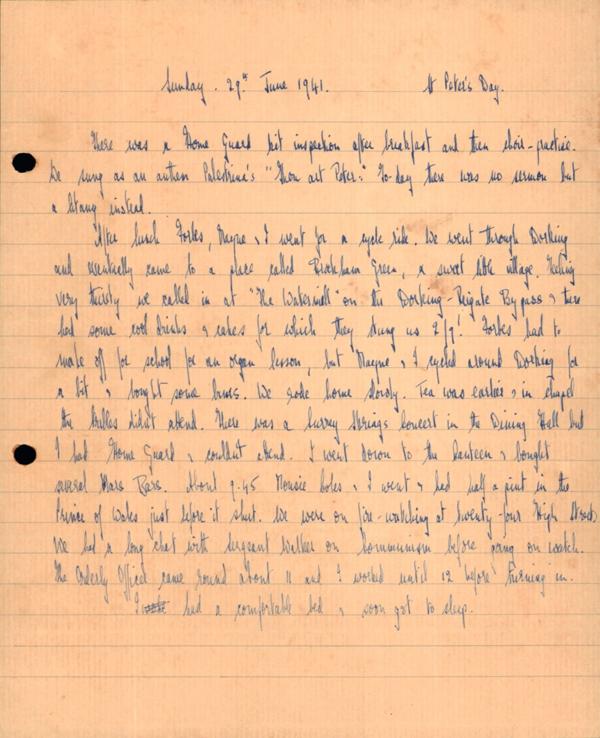 Sunday. 29th June 1941. St Peter's Day.
There was a Home Guard kit inspection after breakfast and then choir-practice.
We sung as an anthem Palestrina's "Thou art Peter." To-day there was no sermon but
a litany instead.
After lunch Forbes, Mayne & I went for a cycle ride. We went through Dorking
and eventually came to a place called Brockham Green, a sweet little village. Feeling
very thirsty we called in at "The Watermill" on the Dorking-Reigate Bypass & there
had some cool drinks & cakes for which they stung us 2/9! Forbes had to
make off for school for an organ lesson, but Mayne & I cycled around Dorking for
a bit & bought some buns. We rode home slowly. Tea was earlier & in chapel
the didn't attend. There was a Surrey Strings Concert in the Dining Hall but
I had Home Guard & couldn't attend. I went down to the Canteen & bought
several Mars Bars. About 9.45 & I went & had half a pint in the
Prince of Wales just before it shut. We were on fire-watching at twenty-four High Street.
We had a long chat with Sergeant Walker on Communism before going on watch.
The Orderly Officer came round about 11 and I worked until 12 before turning in.
I had a comfortable bed & soon got to sleep.